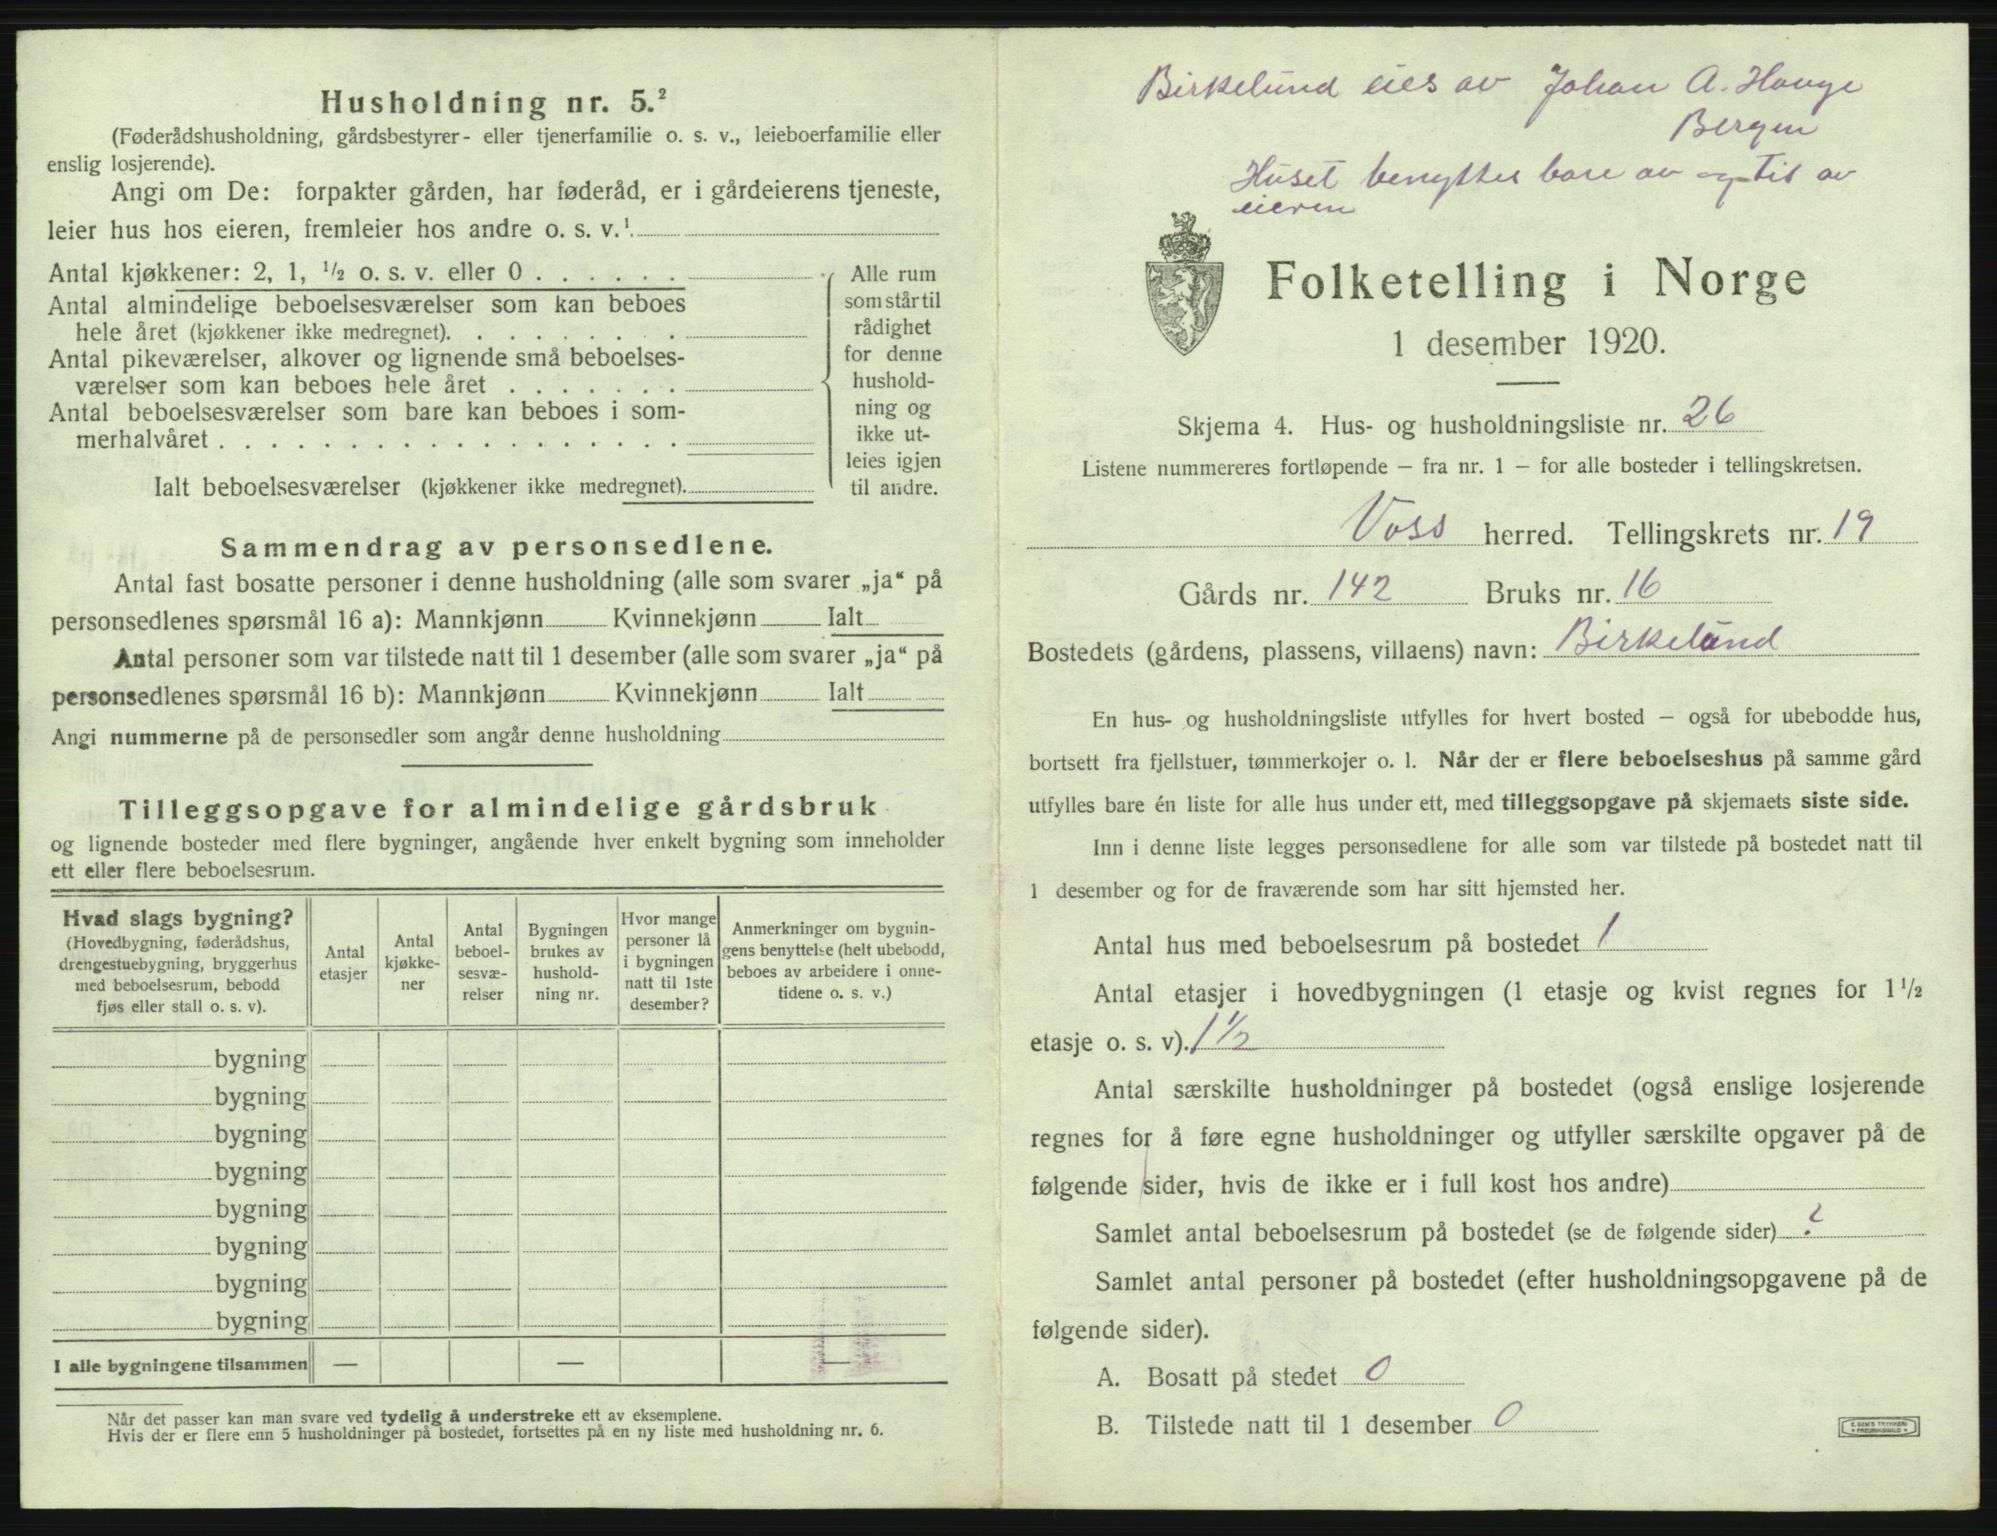 Husholdning nr. 5.²
(Føderådshusholdning, gårdsbestyrer- eller tjenerfamilie o. s. v., leieboerfamilie eller
enslig losjerende).
Angi om De: forpakter gården, har føderåd, er i gårdeierens tjeneste,
leier hus hos eieren, fremleier hos andre o. s. v.¹.
Antal kjøkkener: 2, 1, ½ o. s. v. eller 0 . . . . . .
Antal almindelige beboelsesværelser som kan beboes
hele året (kjøkkener ikke medregnet). . . . . . . . .
Antal pikeværelser, alkover og lignende små beboelses-
værelser som kan beboes hele året . . . . . . .
Antal beboelsesværelser som bare kan beboes i som-
merhalvåret . . . . . . . . . . . . . . . . . .
Ialt beboelsesværelser (kjøkkener ikke medregnet).
Alle rum
som står til
rådighet
for denne
hushold-
ning og
ikke ut-
leies igjen
til andre.
Sammendrag av personsedlene.
Antal fast bosatte personer i denne husholdning (alle som svarer „ja“ på
personsedlenes spørsmål 16 a): Mannkjønn Kvinnekjønn Ialt
Antal personer som var tilstede natt til 1 desember (alle som svarer „ja“ på
personsedlenes spørsmål 16 b): Mannkjønn Kvinnekjønn Ialt
Angi nummerne på de personsedler som angår denne husholdning
Tilleggsopgave for almindelige gårdsbruk
og lignende bosteder med flere bygninger, angående hver enkelt bygning som inneholder
ett eller flere beboelsesrum.
Hvad slags bygning?
(Hovedbygning, føderådshus,
drengestuebygning, bryggerhus
med beboelsesrum, bebodd
fjøs eller stall o. s. v).
Antal
etasjer
Antal
kjøkke-
ner
Antal
beboel-
sesvæ-
relser
Bygningen
brukes av
hushold-
ning nr.
Hvor mange
personer lå
i bygningen
natt til 1ste
desember?
Anmerkninger om bygnin-
gens benyttelse (helt ubebodd,
beboes av arbeidere i onne-
tidene o. s. v.)
bygning
bygning
bygning
bygning
bygning
bygning
bygning
bygning
I alle bygningene tilsammen — — —
Når det passer kan man svare ved tydelig å understreke ett av eksemplene.
Hvis der er flere enn 5 husholdninger på bostedet, fortsettes på en ny liste med husholdning nr. 6.
Birkelund eies av Johan A. Hauge
Bergen
Huset benyttes bare av og til av
eieren
Folketelling i Norge
1 desember 1920.
Skjema 4. Hus- og husholdningsliste nr. 26
Listene nummereres fortløpende — fra nr. 1 — for alle bosteder i tellingskretsen.
Voss herred. Tellingskrets nr. 19
Gårds nr. 142 Bruks nr. 16
Bostedets (gårdens, plassens, villaens) navn: Birkelund
En hus- og husholdningsliste utfylles for hvert bosted — også for ubebodde hus,
bortsett fra fjellstuer, tømmerkojer o. l. Når der er flere beboelseshus på samme gård
utfylles bare én liste for alle hus under ett, med tilleggsopgave på skjemaets siste side.
Inn i denne liste legges personsedlene for alle som var tilstede på bostedet natt til
1 desember og for de fraværende som har sitt hjemsted her.
Antal hus med beboelsesrum på bostedet 1
Antal etasjer i hovedbygningen (1 etasje og kvist regnes for 1½
etasje o. s. v). 1½
Antal særskilte husholdninger på bostedet (også enslige losjerende
regnes for å føre egne husholdninger og utfyller særskilte opgaver på de
følgende sider, hvis de ikke er i full kost hos andre)
Samlet antal beboelsesrum på bostedet (se de følgende sider) ?
Samlet antal personer på bostedet (efter husholdningsopgavene på de
følgende sider).
A. Bosatt på stedet 0
B. Tilstede natt til 1 desember 0
E. SEM'S TRYKKERI
FREDRIKSHALD